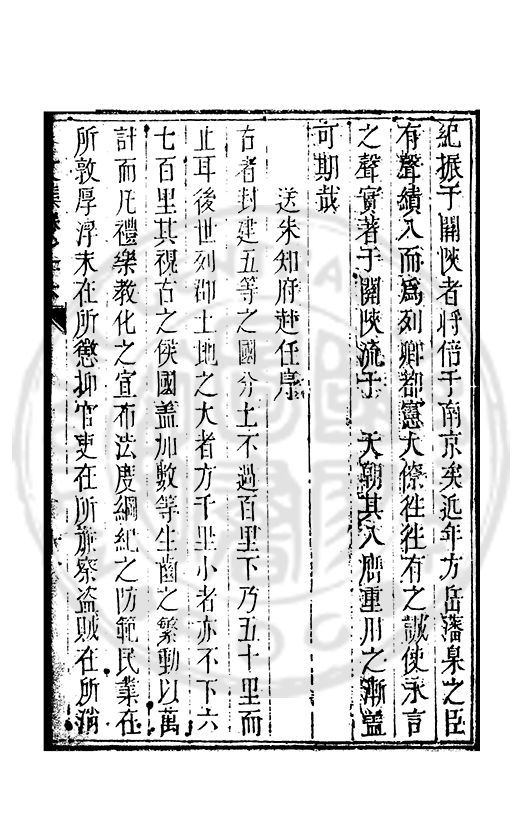 紀振于關陜者將倍于南京矣近年方岳藩臬之臣
有聲績入而為列卿都憲大僚徃徃有之誠使承言
之聲實著于關陜流于　天朝其入膺重用之漸蓋
可期哉
送朱知府赴任序
古者封建五等之國分土不過百里下乃五十里而
止耳後世列郡土地之大者方千里小者亦不下六
七百里其視古之侯國盖加數等生齒之繁動以萬
計而凡禮樂教化之宣布法度綱紀之防範民業在
所敦厚浮末在所懲抑官吏在所旌察盗賊在所消